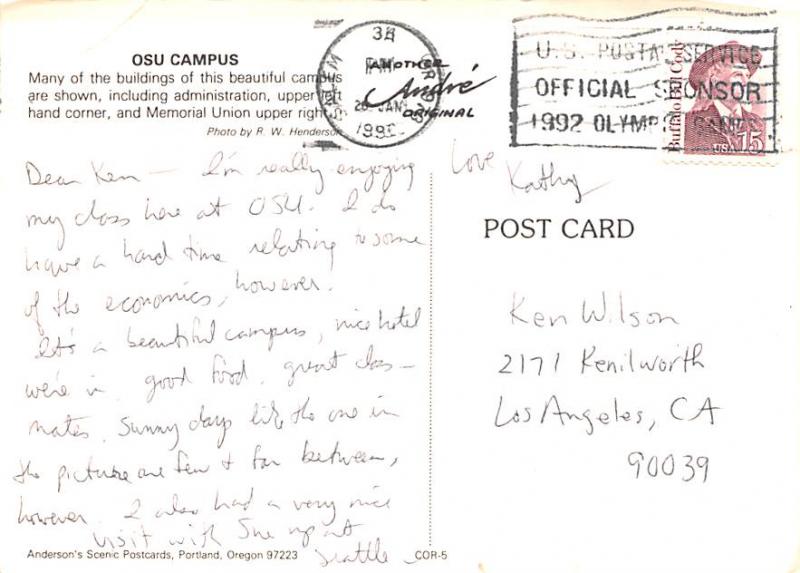 OSU CAMPUS
Many of the buildings of this beautiful campus
are shown, including administration, upper left
hand corner, and Memorial Union upper right.
Photo by R. W. Henderson
ANOTHER
André
ORIGINAL
38
PM
20 JAN
199
U.S. POSTAL SERVICE
OFFICIAL SPONSOR
1992 OLYMPIC GAMES
Buffalo Bill Cody
USA 15
Dear Ken — I'm really enjoying
my class here at OSU. I do
have a hard time relating to some
of the economics, however.
It's a beautiful campus, nice hotel
we're in, good food, great class-
mates. Sunny days like the one in
the picture are few & far between,
however. I also had a very nice
visit with Sue up at
Seattle
Love
Kathy
POST CARD
Ken Wilson
2171 Kenilworth
Los Angeles, CA
90039
Anderson's Scenic Postcards, Portland, Oregon 97223
COR-5